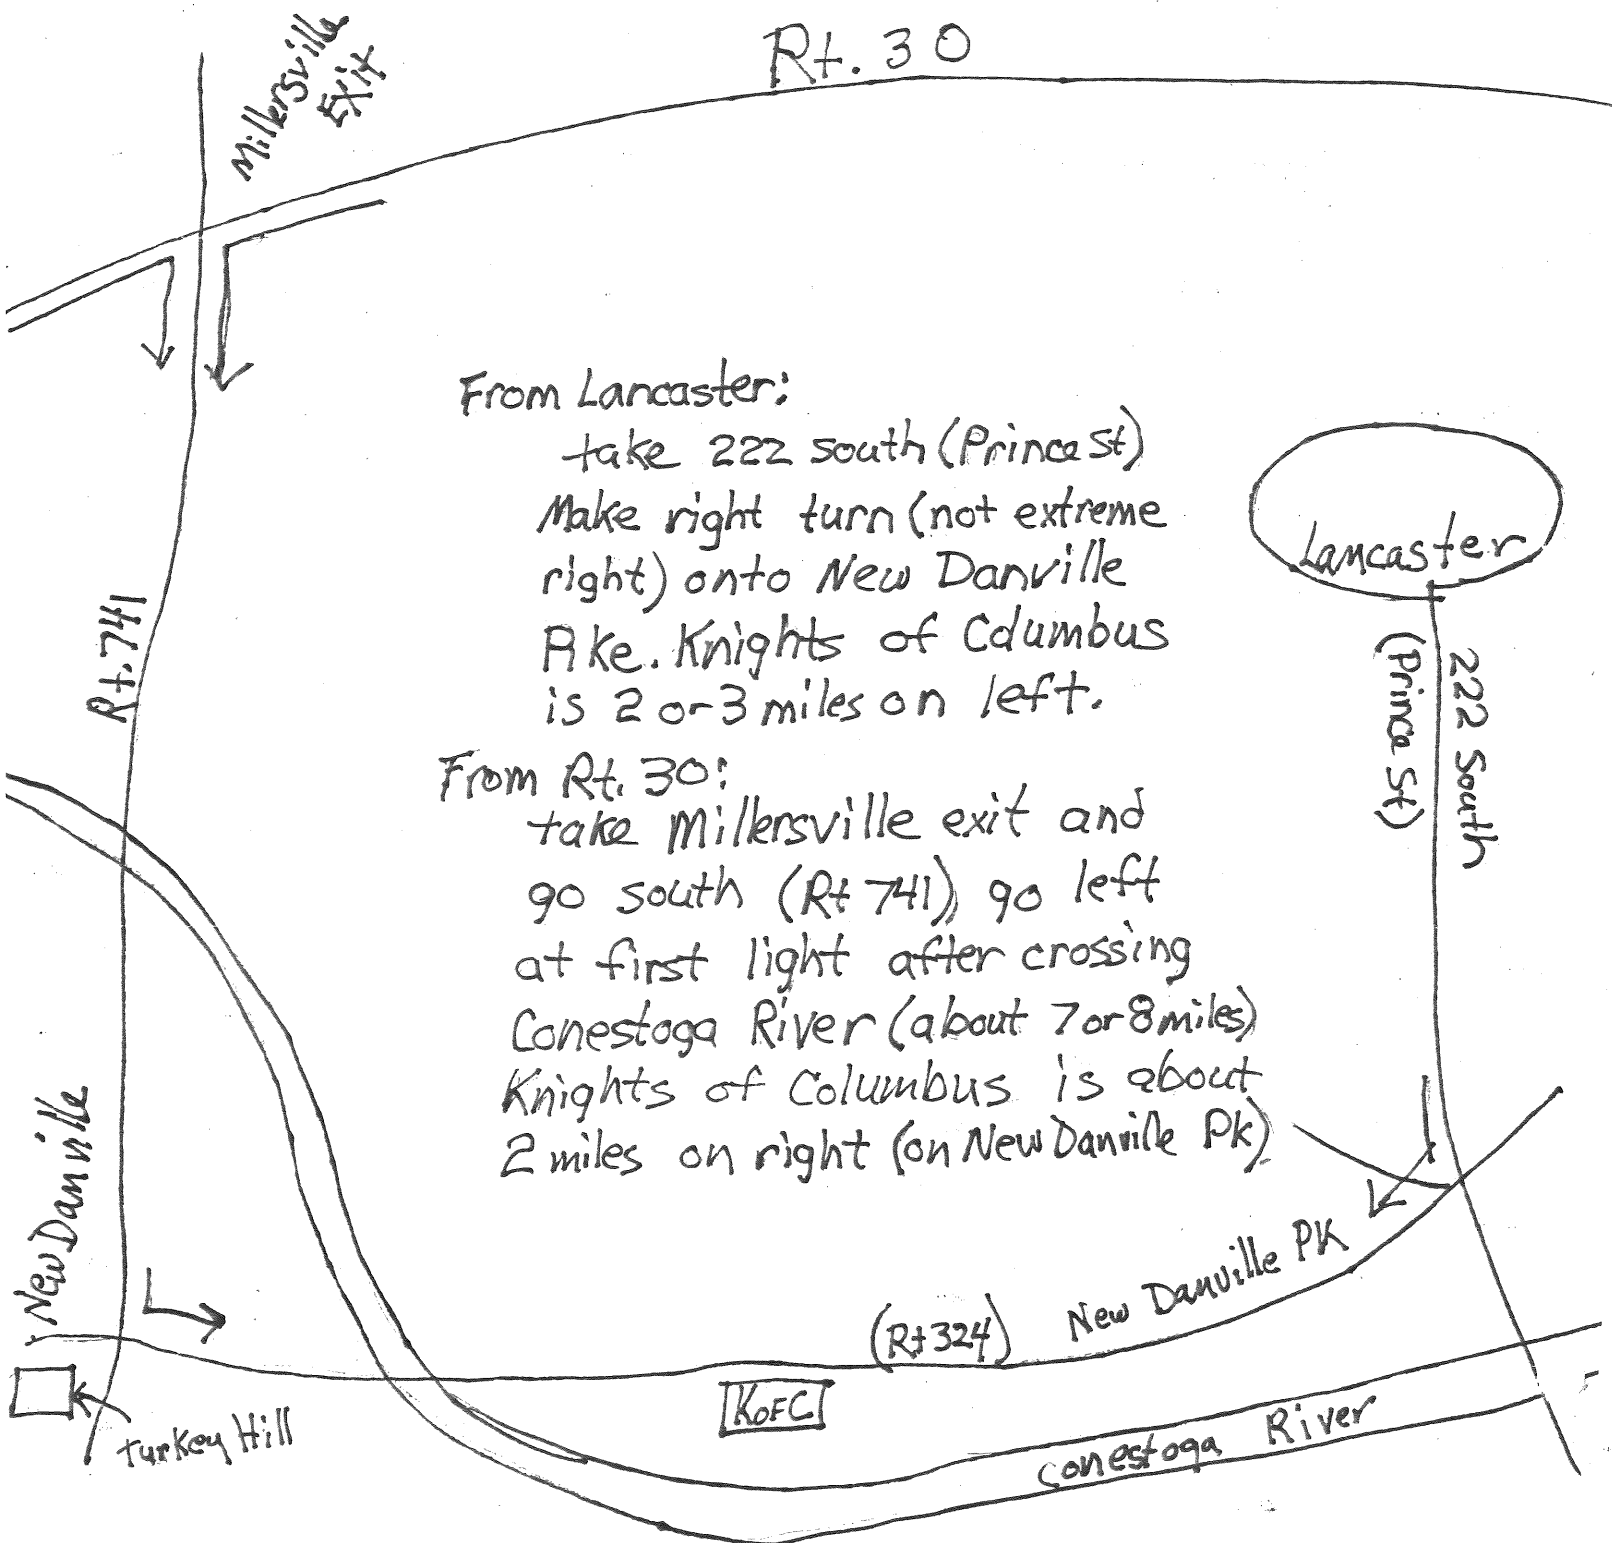 Rt. 30
Millersville
Exit
From Lancaster:
take 222 south (Prince St)
Make right turn (not extreme
right) onto New Danville
Pike. Knights of Columbus
is 2 or 3 miles on left.
From Rt. 30:
take Millersville exit and
go south (Rt 741) go left
at first light after crossing
Conestoga River (about 7 or 8 miles)
Knights of Columbus is about
2 miles on right (on New Danville Pk)
Lancaster
222 South
(Prince St)
Rt. 741
New Danville
New Danville PK
(Rt 324)
KOFC
Turkey Hill
Conestoga River